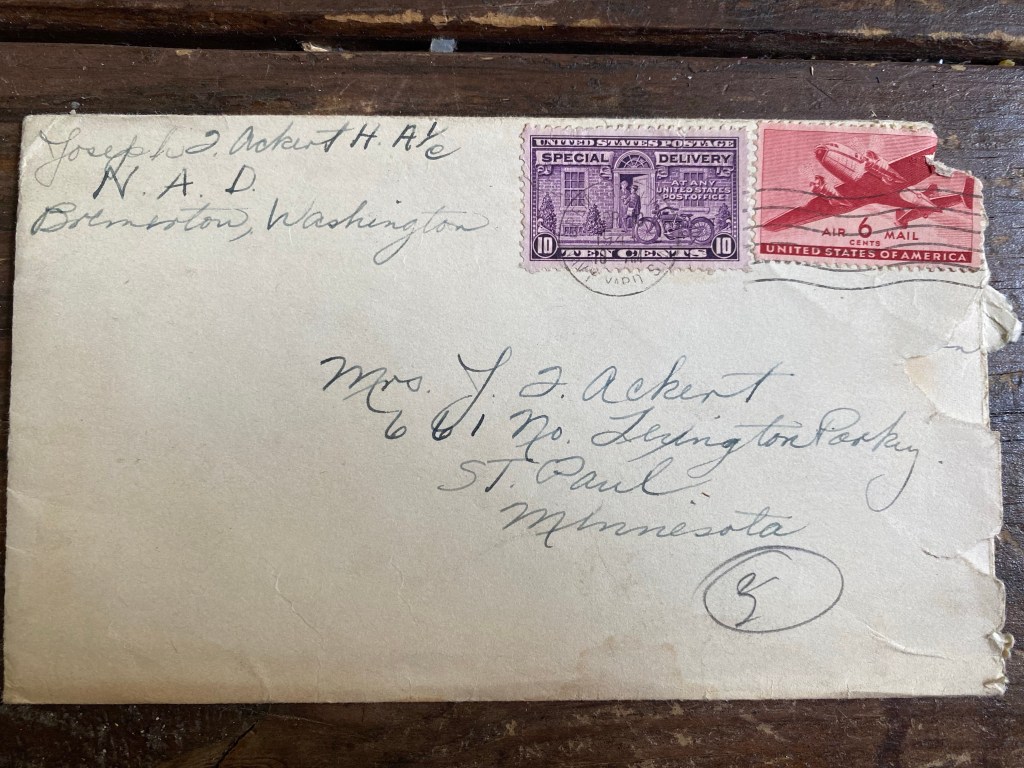 Joseph J. Ackert H. A 1/c
N. A. D.
Bremerton, Washington
UNITED STATES POSTAGE
SPECIAL DELIVERY
AT ANY
UNITED STATES
POST OFFICE
10 TEN CENTS 10
AIR 6 MAIL
CENTS
UNITED STATES OF AMERICA
Mrs. J. J. Ackert
661 No. Lexington Parky.
ST. Paul
Minnesota